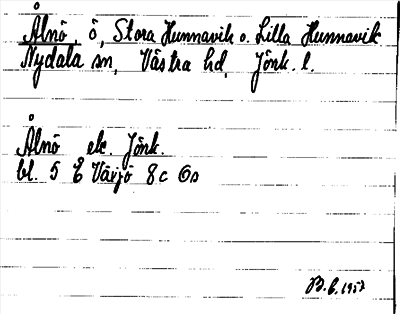 Ålnö, ö, Stora Hunnavik o. Lilla Hunnavik
Nydala sn, Västra hd, Jönk. l.
Ålnö ek. Jönk.
bl. 5 E Växjö 8c
B.E. 1957